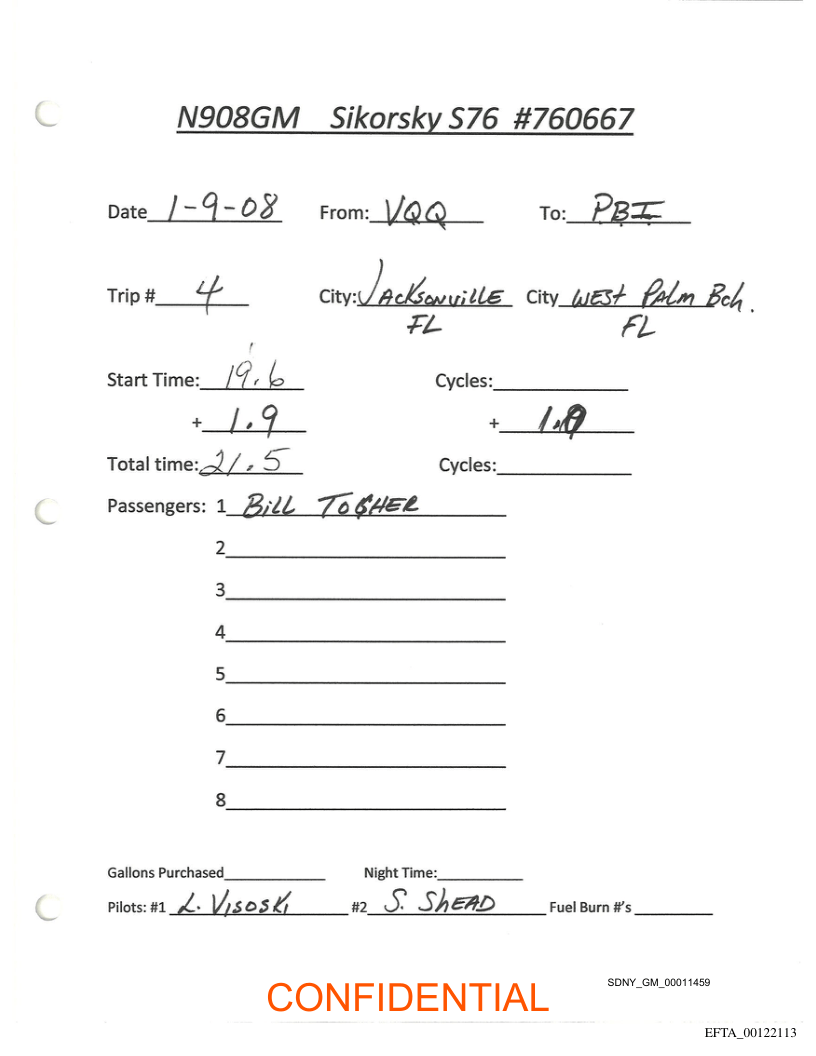 N908GM Sikorsky S76 #760667
Date 1-9-08 From: VQQ To: PBI
Trip # 4 City: JACKSONVILLE City WEST PALM Bch.
FL FL
Start Time: 19.6 Cycles:
+ 1.9 +
Total time: 21.5 Cycles:
Passengers: 1 BILL TOGHER
2
3
4
5
6
7
8
Gallons Purchased Night Time:
Pilots: #1 L. VISOSKI #2 S. SHEAD Fuel Burn #'s
SDNY_GM_00011459
CONFIDENTIAL
EFTA_00122113